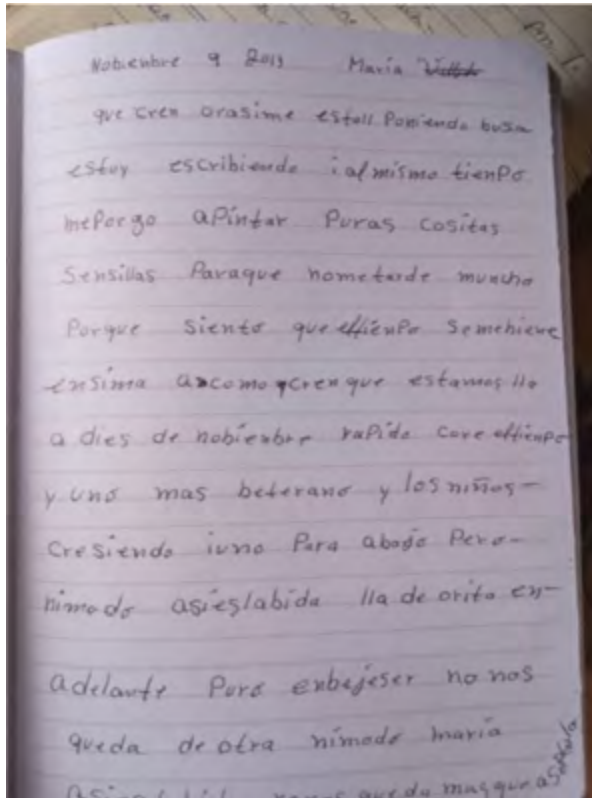 Nobienbre 9 2019 María
que cren orasime estoll Poniendo busa
estoy escribiendo i al mismo tienPo
mePorgo aPintar Puras cositas
Sensillas Paraque nometarde muncho
Porque siento que eltienPo Semebiene
ensima ascomo ycrenque estamos lla
a dies de nobienbre raPido core eltienpo
y uno mas beterano y los niños-
Cresiendo iuno Para abajo Pero-
nimodo asieslabida lla de orita en-
adelante Puro enbejeser no nos
queda de otra nimodo maría
queda masque